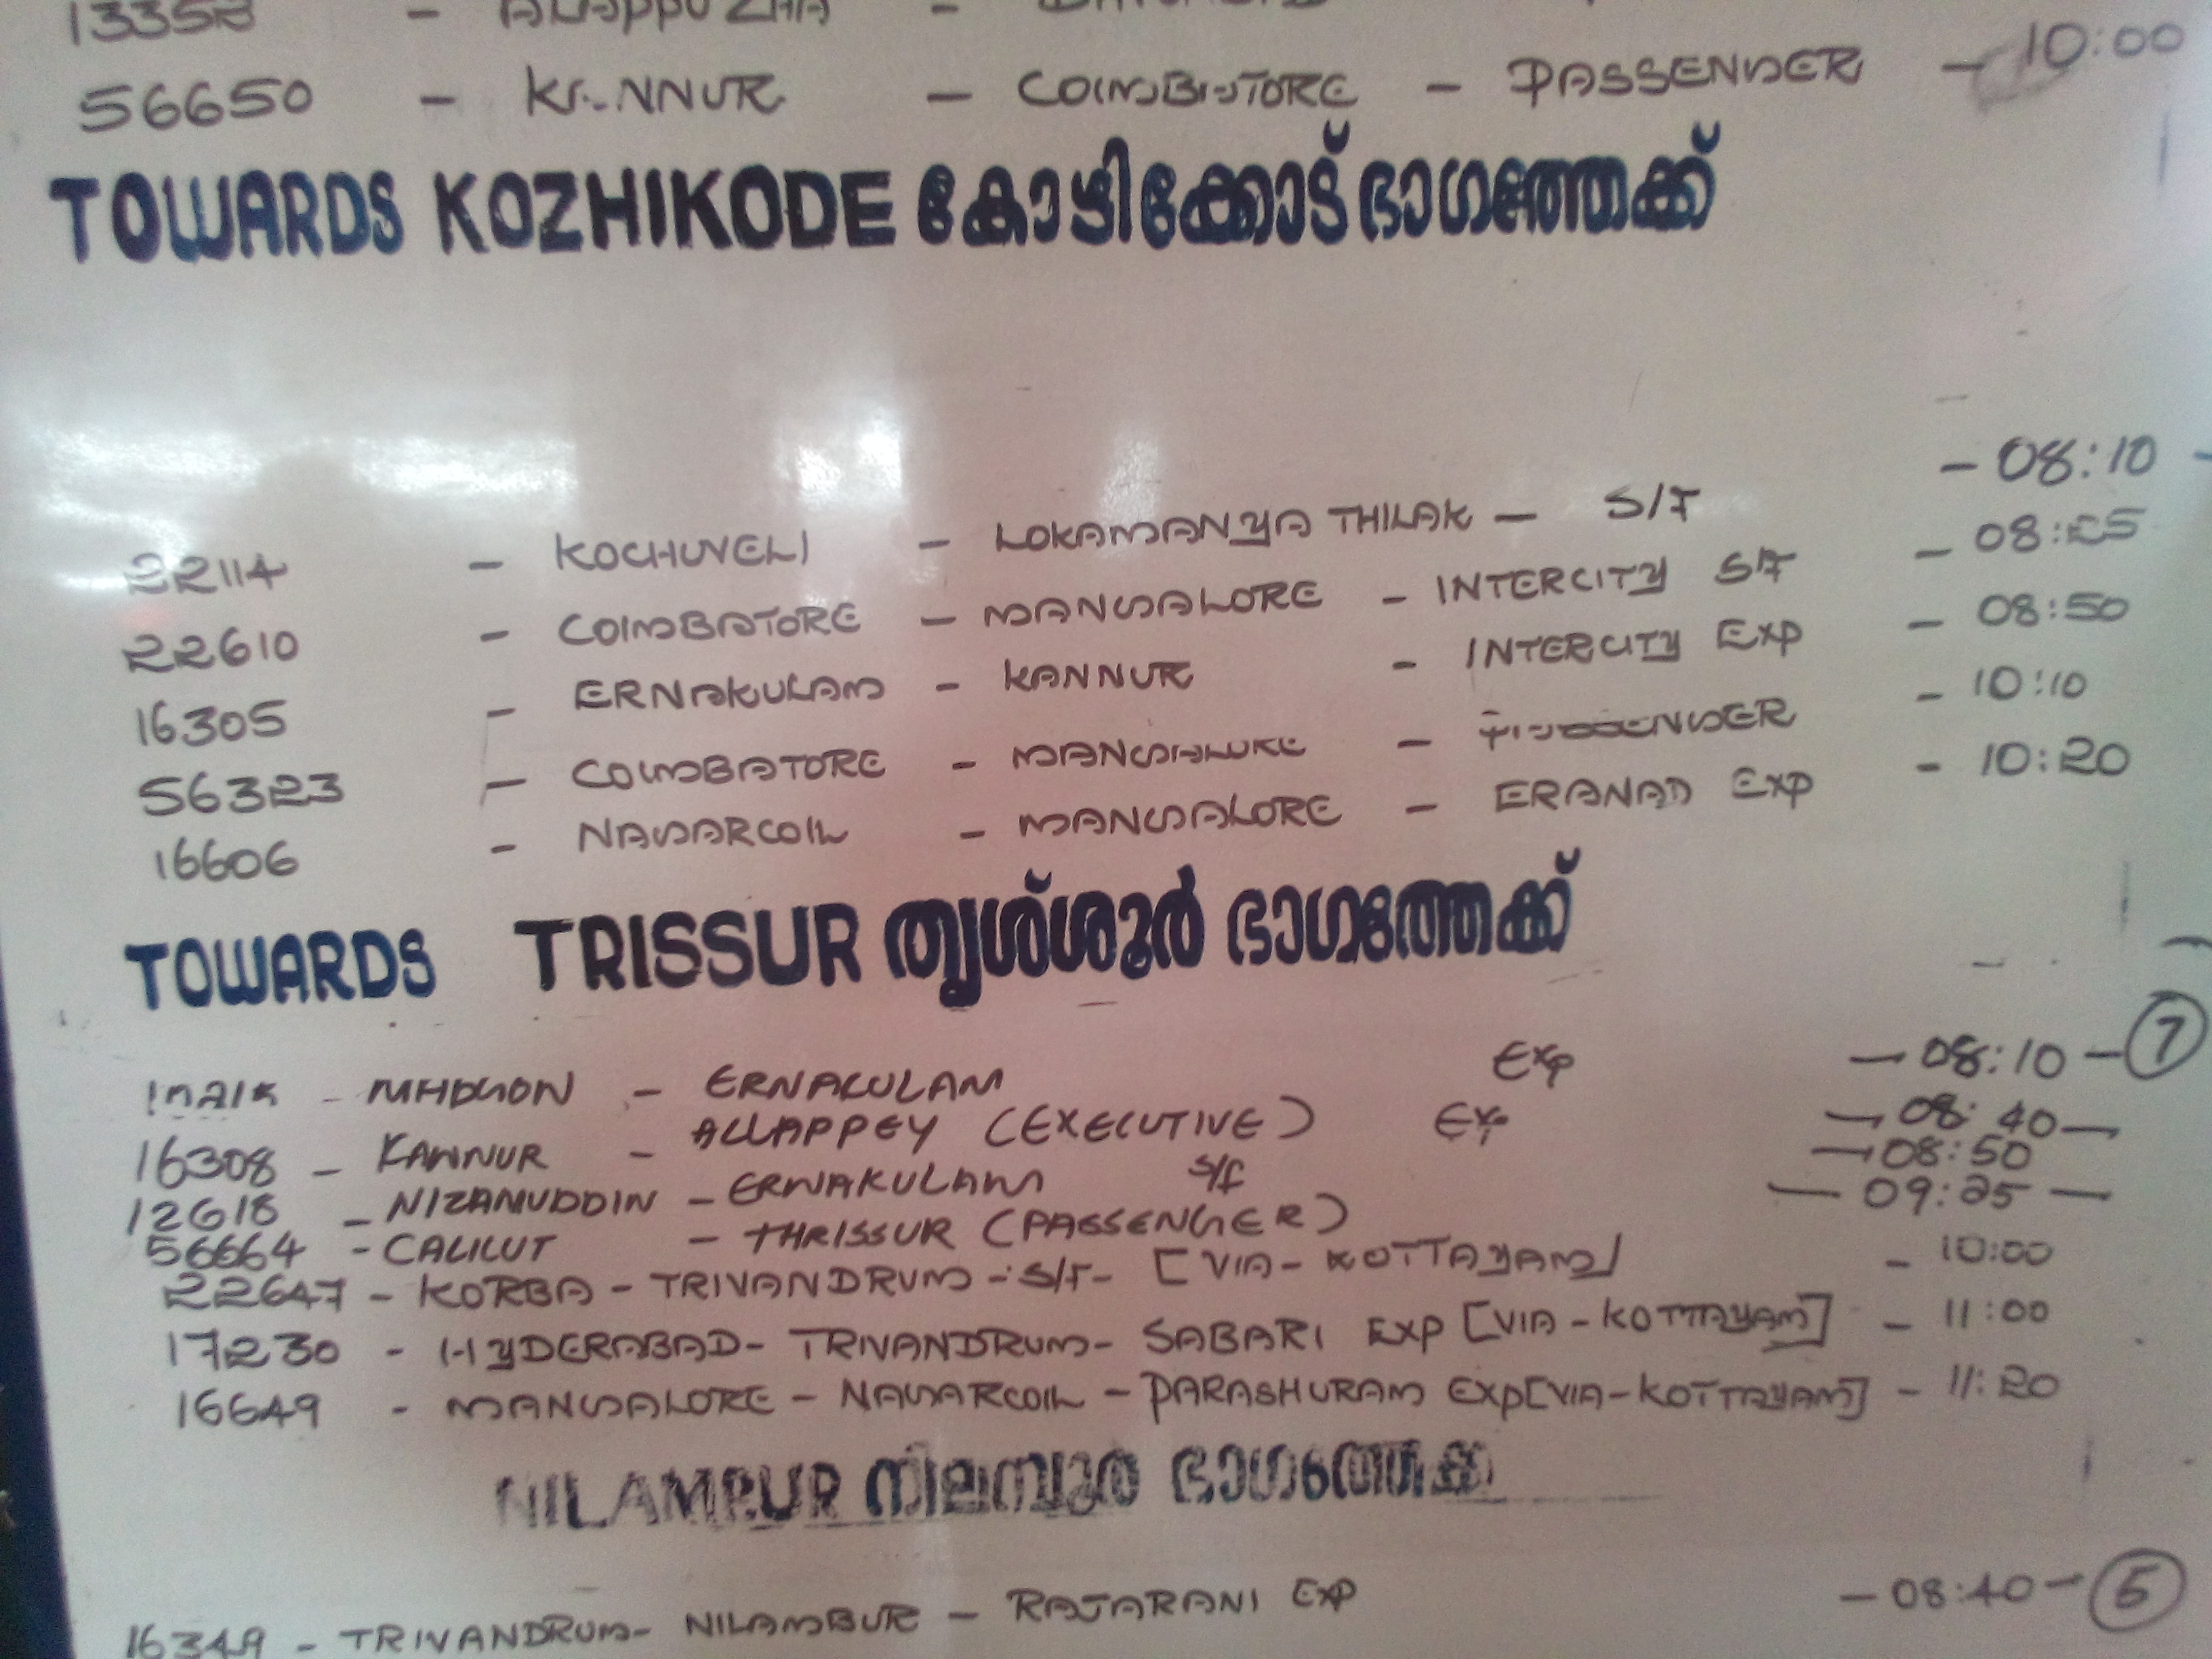 13352 - ALAPPUZHA -
56650 - KANNUR - COIMBATORE - PASSENGER - 10:00
TOWARDS KOZHIKODE കോഴിക്കോട് ഭാഗത്തേക്ക്
22114 - KOCHUVELI - LOKAMANYA THILAK - S/F - 08:10
22610 - COIMBATORE - MANGALORE - INTERCITY S/F - 08:25
16305 - ERNAKULAM - KANNUR - INTERCITY EXP - 08:50
56323 - COIMBATORE - MANGALORE - PASSENGER - 10:10
16606 - NAGARCOIL - MANGALORE - ERANAD EXP - 10:20
TOWARDS TRISSUR തൃശ്ശൂർ ഭാഗത്തേക്ക്
- MADGON - ERNACULAM EXP - 08:10 - 7
16308 - KANNUR - ALLAPPEY (EXECUTIVE) EXP - 08:40 -
12618 - NIZAMUDDIN - ERNAKULAM S/f - 08:50
56664 - CALICUT - THRISSUR (PASSENGER) - 09:25 -
22647 - KORBA - TRIVANDRUM - S/F - [VIA - KOTTAYAM] - 10:00
17230 - HYDERABAD - TRIVANDRUM - SABARI EXP [VIA - KOTTAYAM] - 11:00
16649 - MANGALORE - NAGARCOIL - PARASHURAM EXP [VIA - KOTTAYAM] - 11:20
NILAMPUR നിലമ്പൂർ ഭാഗത്തേക്ക്
16349 - TRIVANDRUM - NILAMBUR - RAJARANI EXP - 08:40 - 5